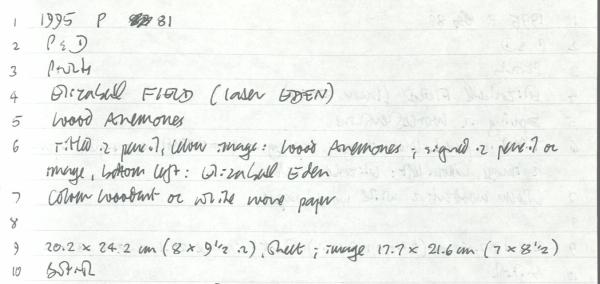 1 1995 P 81
2 P & D
3 Prints
4 Elizabeth FIELD (later EDEN)
5 Wood Anemones
6 Titled in pencil, below image: Wood Anemones; signed in pencil on
image, bottom left: Elizabeth Eden
7 Colour woodcut on white wove paper
8
9 20.2 x 24.2 cm (8 x 9 1/2 in), sheet; image 17.7 x 21.6 cm (7 x 8 1/2)
10